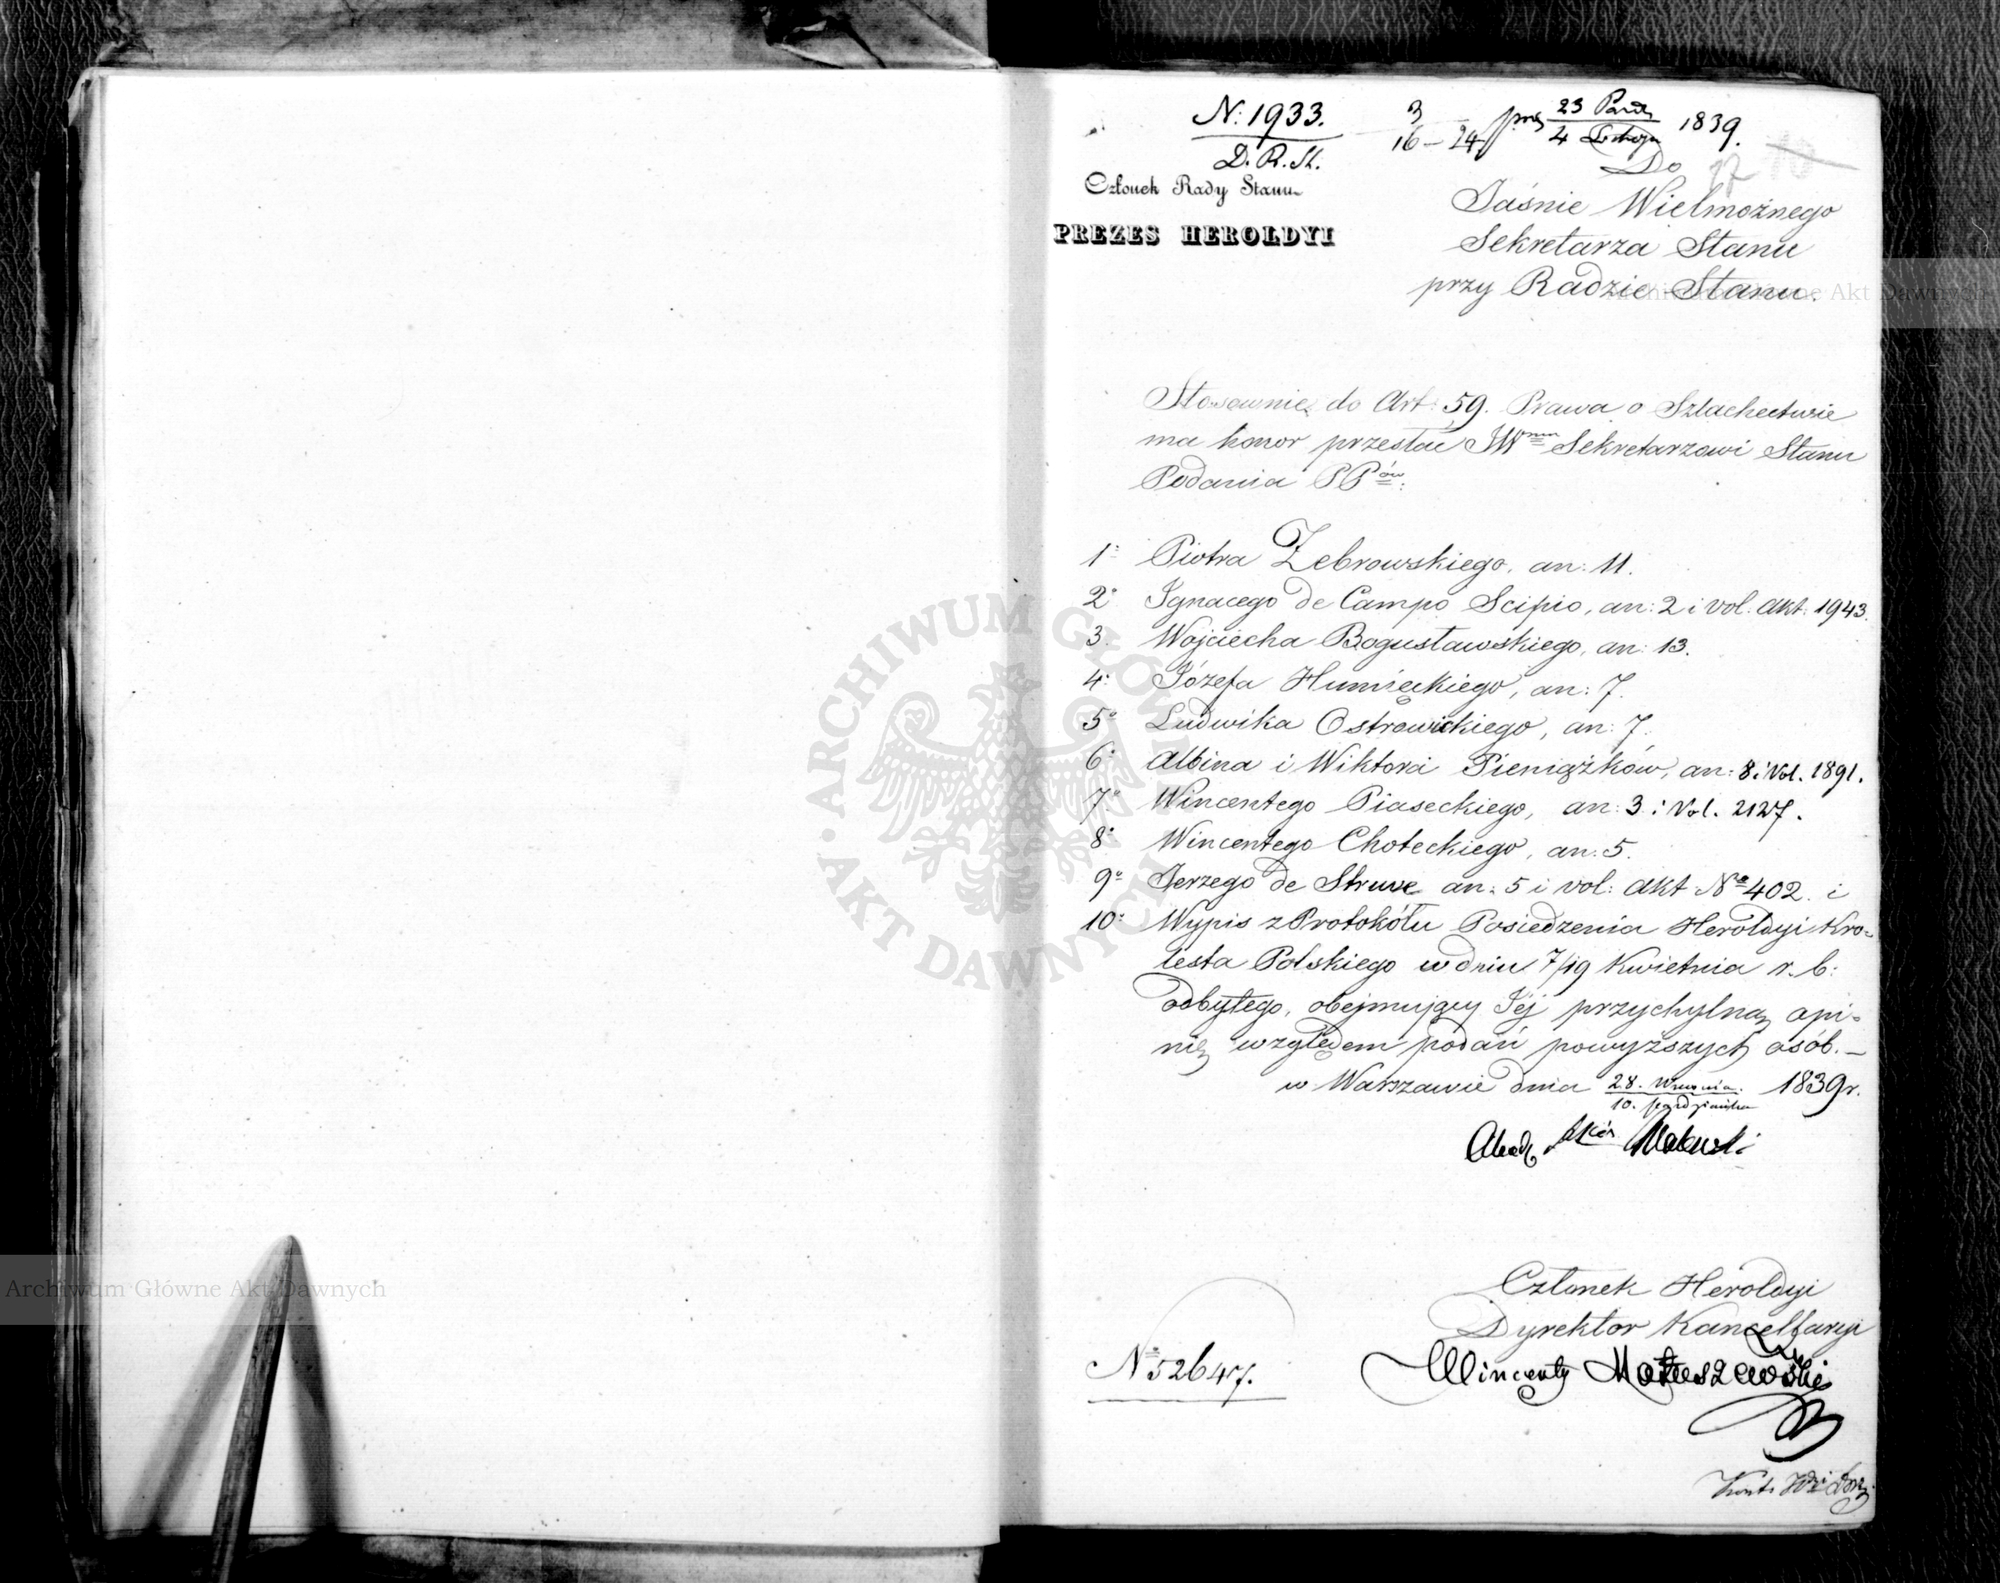 N: 1933.
D. R. St.
3
16 – 24
23 Paźd
4 1839.
Do
Członek Rady Stanu
PREZES HEROLDYI
Jaśnie Wielmożnego
Sekretarza Stanu
przy Radzie Stanu.
Stosownie do Art: 59. Prawa o Szlachectwie
ma honor przesłać JW Sekretarzowi Stanu
Podania PPów:
1° Piotra Żebrowskiego, an: 11.
2° Ignacego de Campo Scipio, an: 2 i vol. akt: 1943.
3. Wojciecha Bogusławskiego, an: 13.
4° Józefa Humięckiego, an: 7.
5° Ludwika Ostrowickiego, an: 7.
6° Albina i Wiktora Pieniążków, an: 8 i Vol. 1891.
7° Wincentego Piaseckiego, an: 3 i Vol. 2127.
8° Wincentego Choteckiego, an: 5.
9° Jerzego de Struve an: 5 i vol: akt N° 402. i
10° Wypis z Protokółu Posiedzenia Heroldyi Kro-
lestwa Polskiego w dniu 7/19 Kwietnia r. b:
odbytego, obejmujący Jéj przychylną opi-
nię względem podań powyższych osób. –
w Warszawie dnia 28. Września 1839 r.
10. października
Członek Heroldyi
Dyrektor Kancellaryi
Wincenty Matuszewski
N° 52647.
Archiwum Główne Akt Dawnych
Archiwum Główne Akt Dawnych
ARCHIWUM GŁÓWNE · AKT DAWNYCH